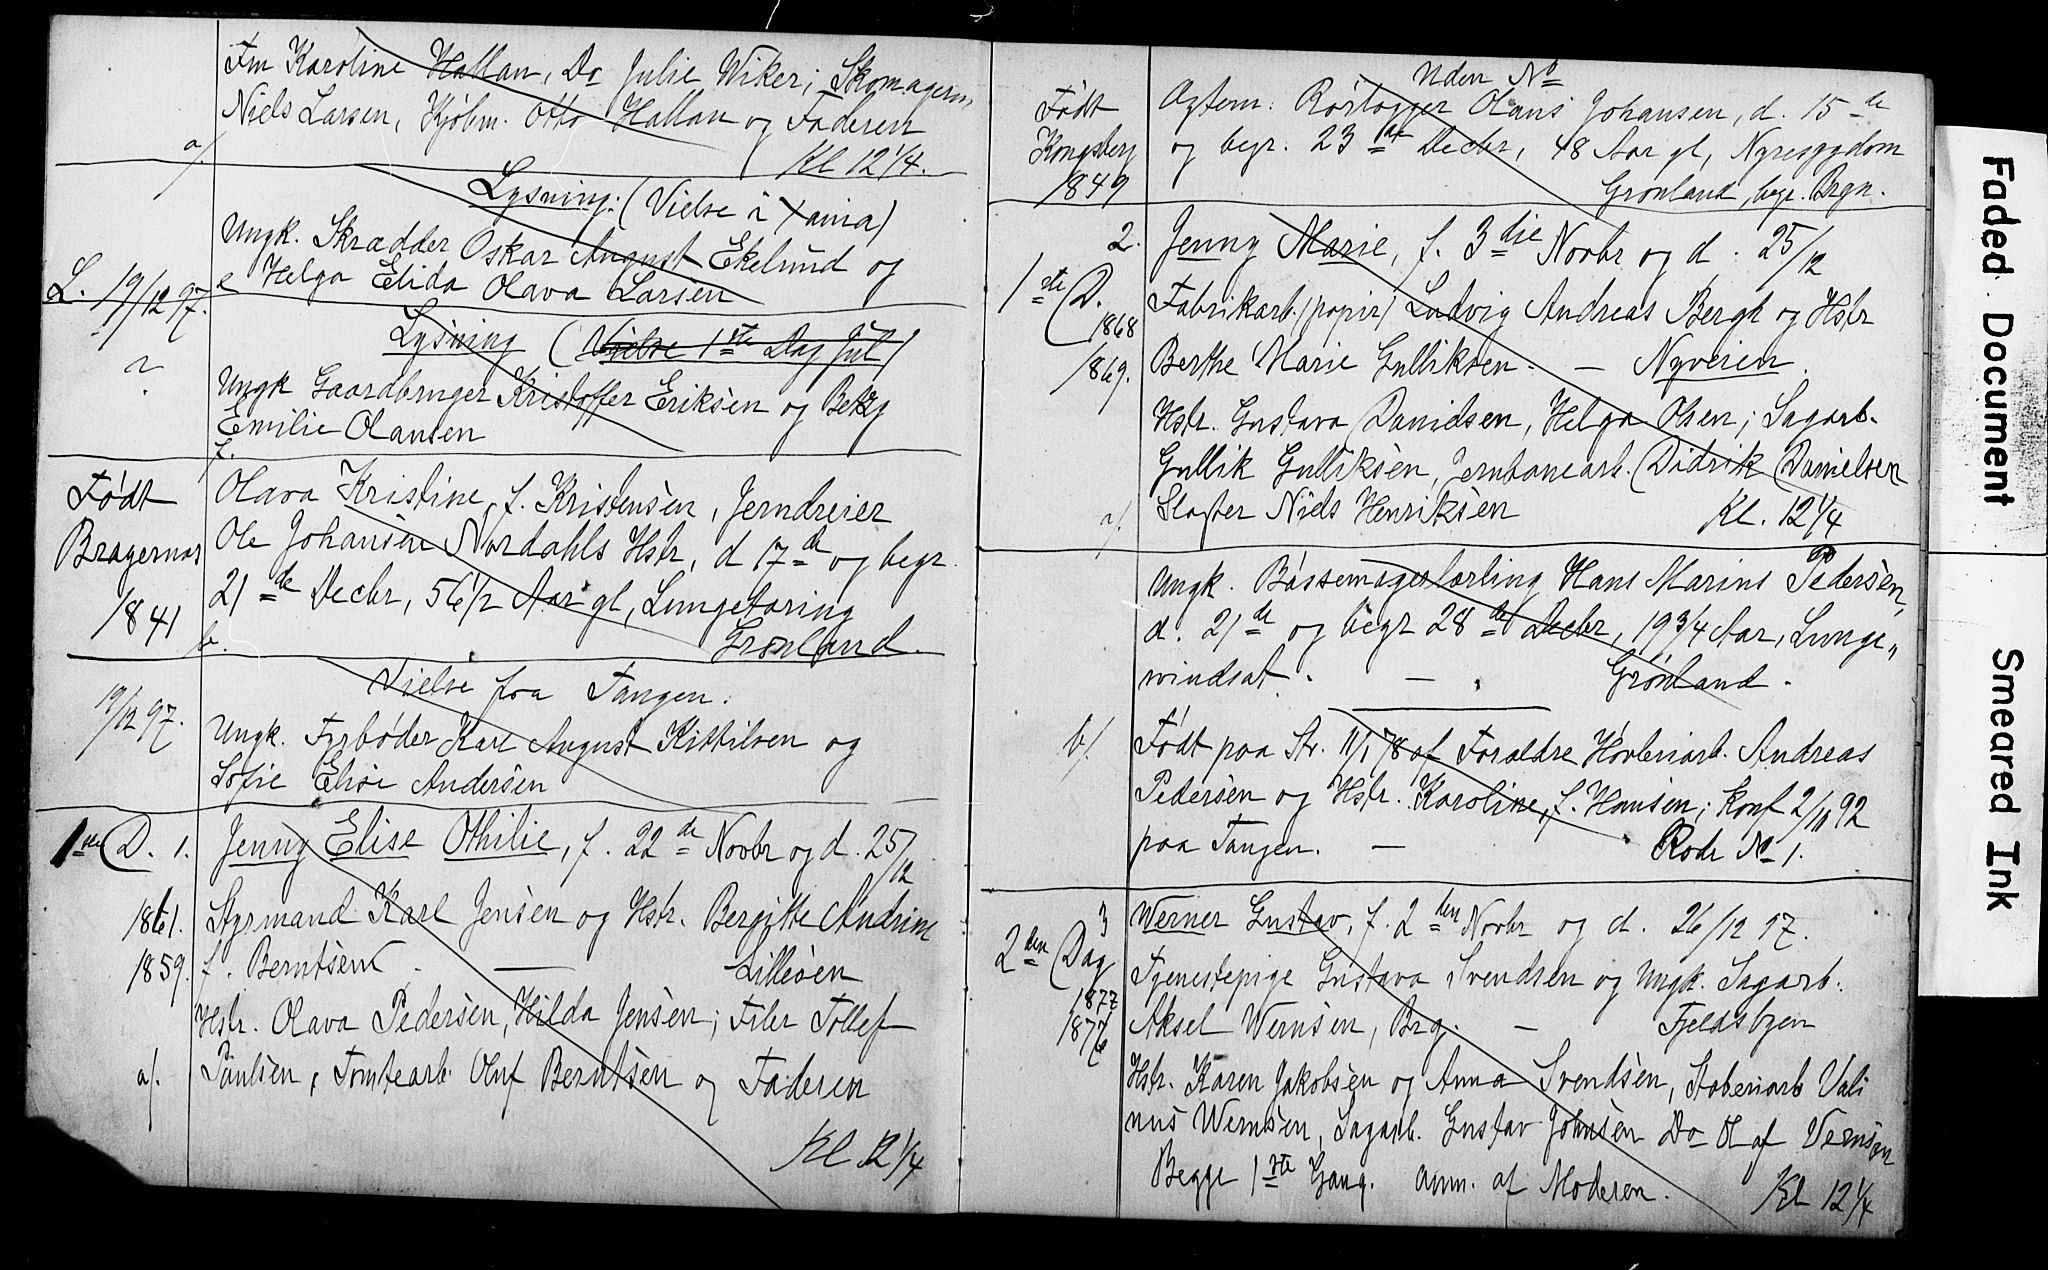 Frn Karoline Hallan, Do Julie Wiker; Skomagerm
Niels Larsen, Kjøbm. Otto Hallan og Faderen
a/. Kl 12 1/4.
Lysning: (Vielse i
Ungk. Skrædder Oskar August Ekelund og
L. 19/12 97. Helga Elida Olava Larsen
Lysning (Vielse 1ste Dag Jul)
Ungk Gaardbruger Kristoffer Eriksen og Betzy
Emilie Olausen
Født Bragernes 1841
Olava Kristine, f. Kristensen, Jerndreier
Ole Johansen Nordahls Hstr, d 17de og begr.
21de Decbr, 56 1/2 Aar gl, Lungetæring
b. Grønland.
Vielse fra Tangen.
19/12 97. Ungk. Fyrbøder Karl August Kittilsen og
Sofie Elise Andersen
1ste D. 1. Jenny Elise Othilie, f. 22de Novbr og d. 25/12
1861. Styrmand Karl Jensen og Hstr. Bergitte Andrine
1859. f. Berntsen. — Lilleøen
Hstr. Olava Pedersen, Hilda Jensen; Filer Tollef
a/. Paulsen, Tomtearb. Oluf Berntsen og Faderen
Kl 12 1/4
Uden No
Født Kongsberg 1849
Agtem. Rørlægger Olaus Johansen, d. 15de
og begr. 23de Decbr, 48 Aar gl, Nyresygdom
Grønland, begr. Brgn.
2. Jenny Marie, f. 3die Novbr og d. 25/12
1ste D. 1868 Fabrikarb. (papir) Ludvig Andreas Bergh og Hstr
1869. Berthe Marie Gulliksen. — Nyveien.
Hstr. Gustava Davidsen, Helga Olsen; Sagarb.
Gullik Gulliksen, Jernbanearb. Didrik Danielsen
a/. Slagter Niels Henriksen Kl. 12 1/4
Ungk. Bøssemagerlærling Hans Marius Pedersen,
d. 21de og begr 28de Decbr, 19 3/4 Aar, Lunge„
windsot. — Grønland.
b/. Født paa Str. 11/1 78 af Forældre Høvleriarb. Andreas
Pedersen og Hstr. Karoline, f. Hansen; konf 2/10 92
paa Tangen. — Rode No 1.
3 Werner Gustav, f. 2den Novbr og d. 26/12 97.
2den Dag Tjenestepige Gustava Svendsen og Ungk. Sagarb.
1877 1876 Aksel Wernsen, Brg. — Fjeldsbyen
Hstr. Karen Jakobsen og Anna Svendsen, Støberiarb Vali
nus Wernsen, Sagarb. Gustav Johnsen Do Olaf Vernsen
Begge 1ste Gang. anm. af Moderen. Kl 12 1/4
Faded Document
Smeared Ink